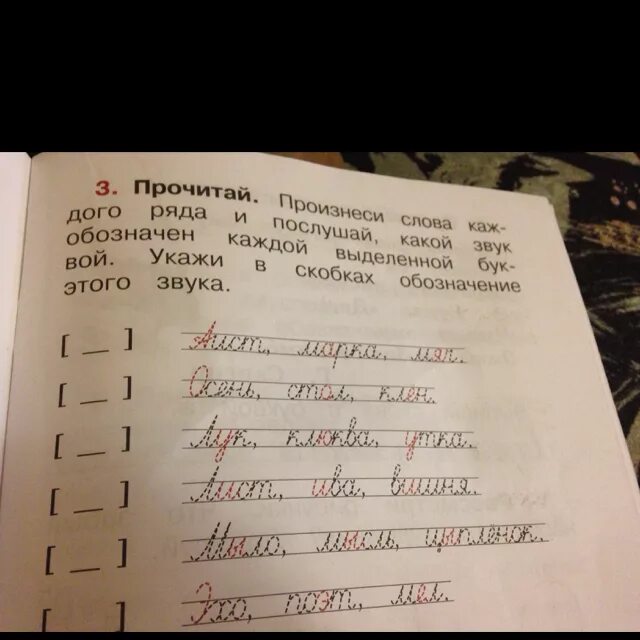 3. Прочитай. Произнеси слова каж-
дого ряда и послушай, какой звук
обозначен каждой выделенной бук-
вой. Укажи в скобках обозначение
этого звука.
[ _ ] Аист, марка, мяч.
[ _ ] Осень, стол, клен.
[ _ ] Лук, клюква, утка.
[ _ ] Лист, ива, вишня.
[ _ ] Мыло, мысль, цыплёнок.
[ _ ] Эхо, поэт, мел.